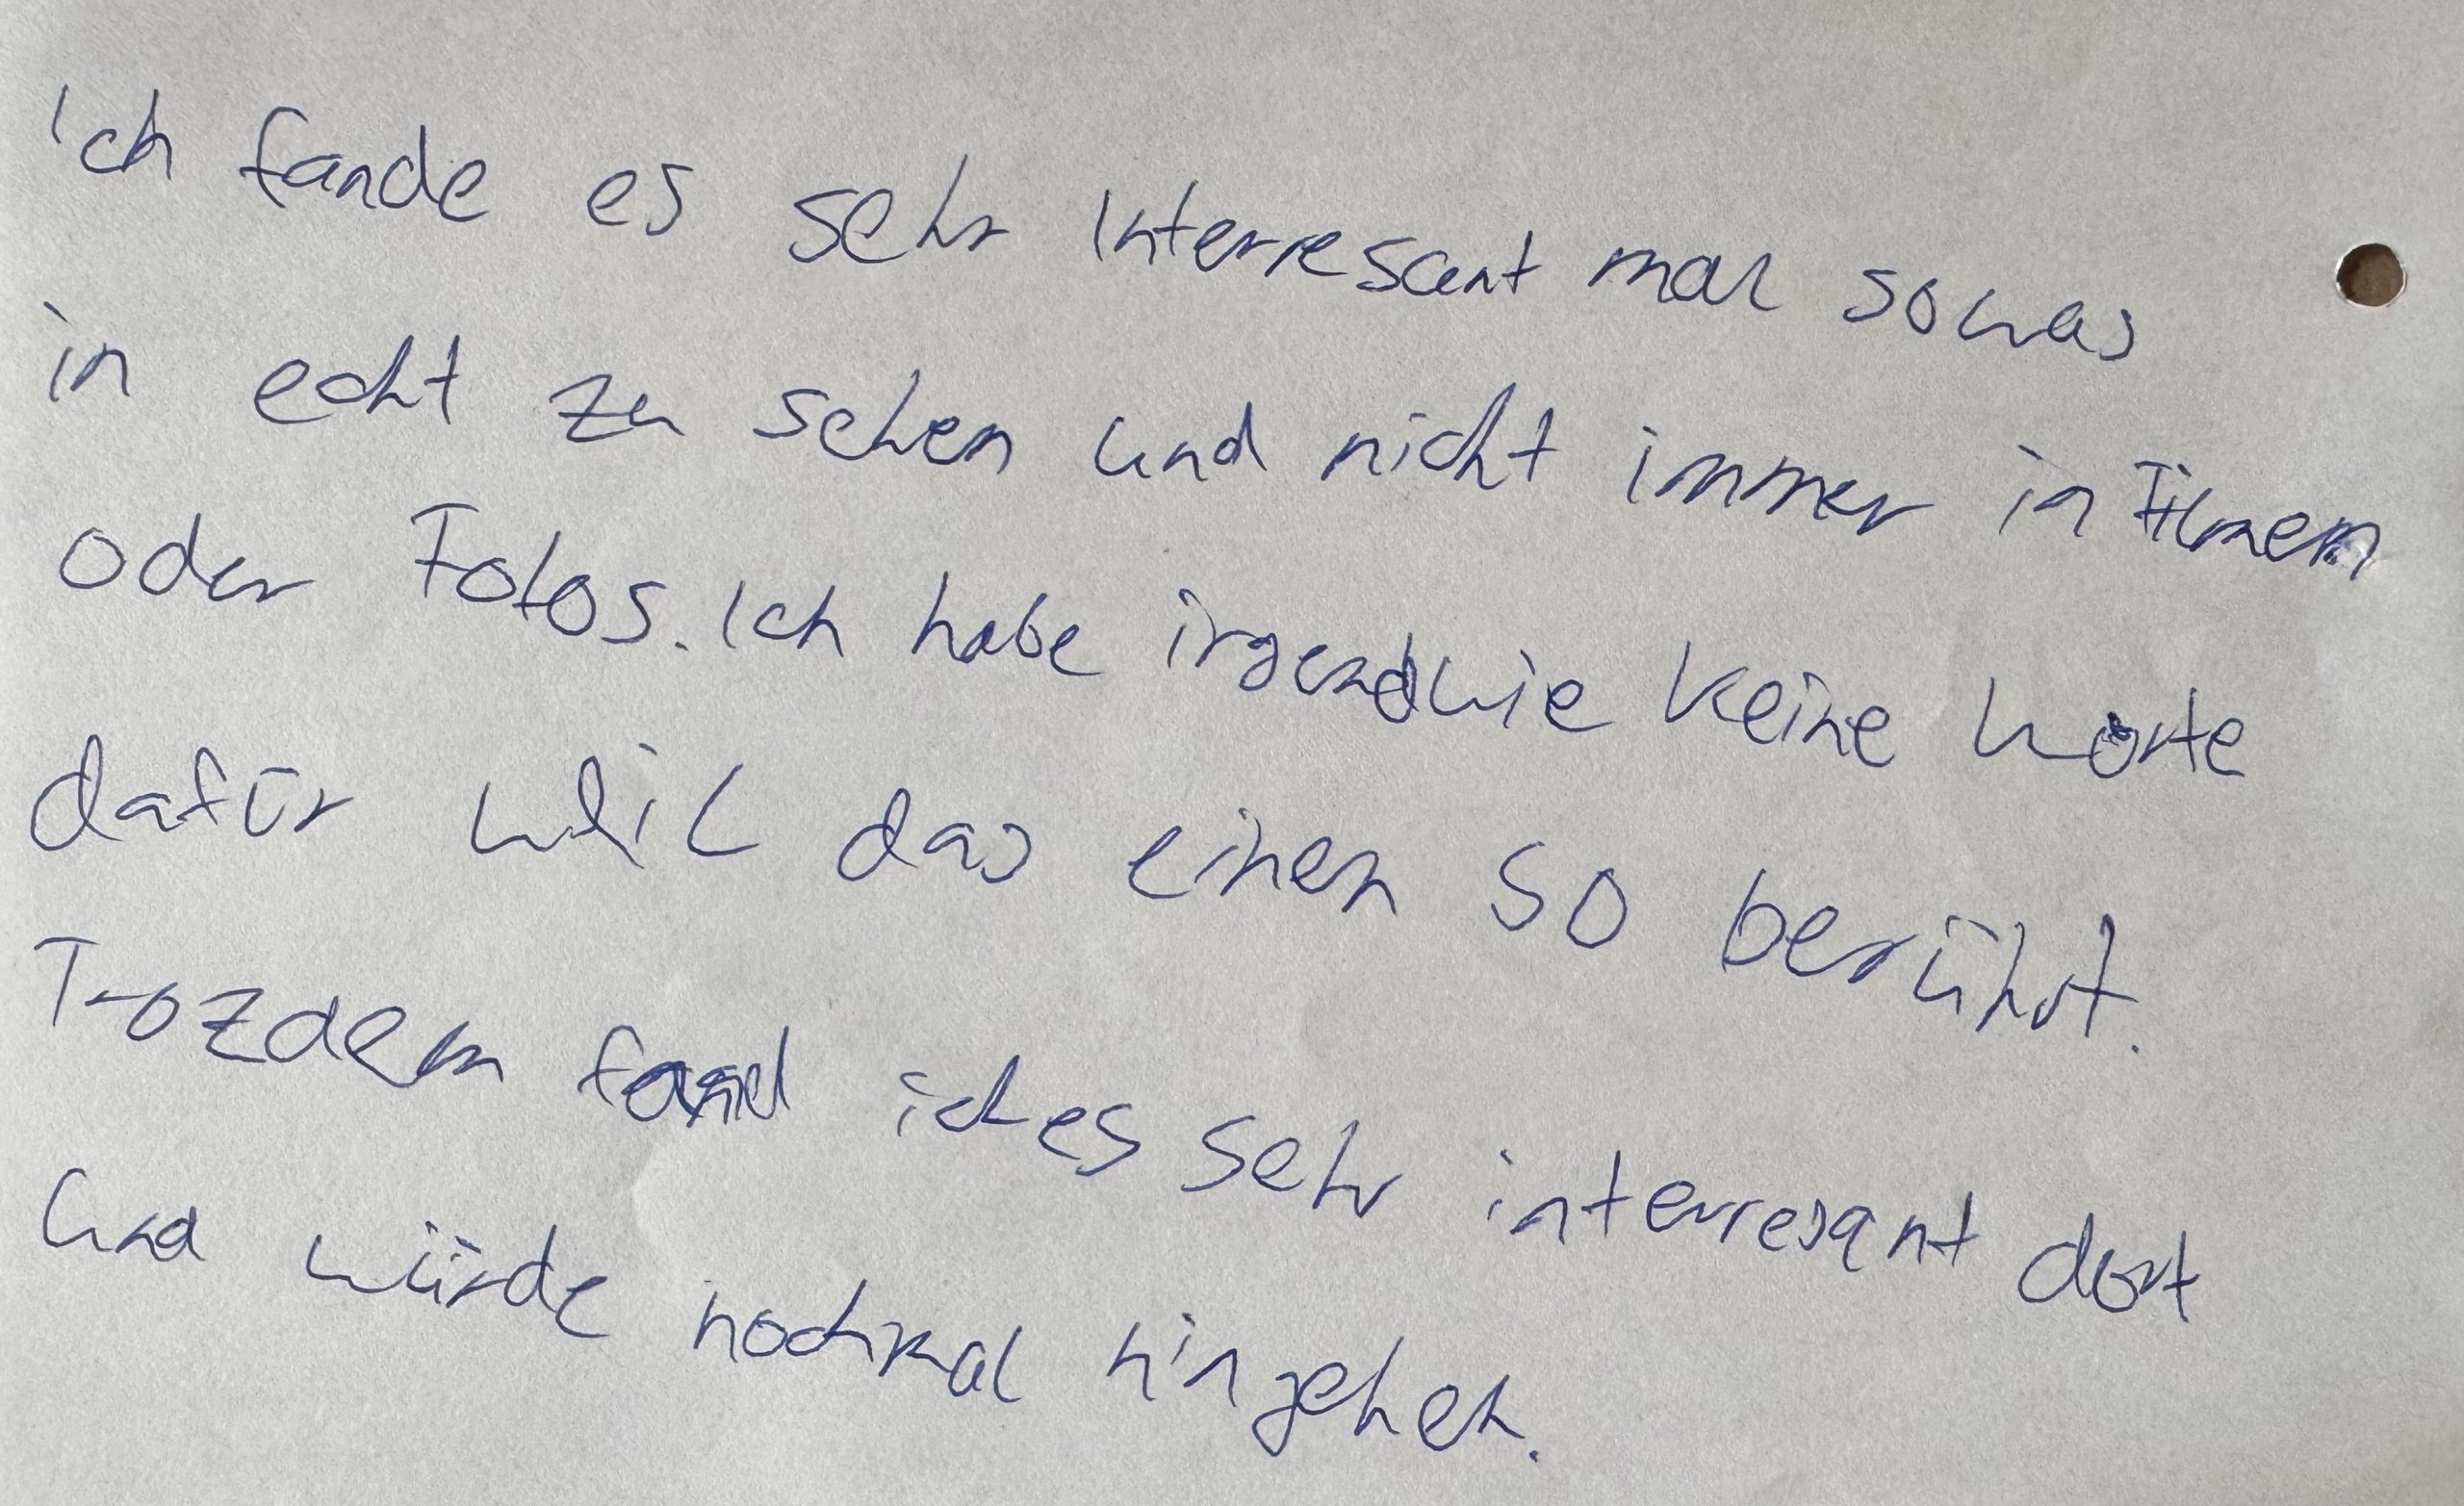 Ich fande es sehr interressant mal sowas
in echt zu sehen und nicht immer in Filmen
oder Fotos. Ich habe irgendwie keine Worte
dafür weil das einen so berührt.
Trozdem fand ich es sehr interresant dort
und würde nochmal hingehen.